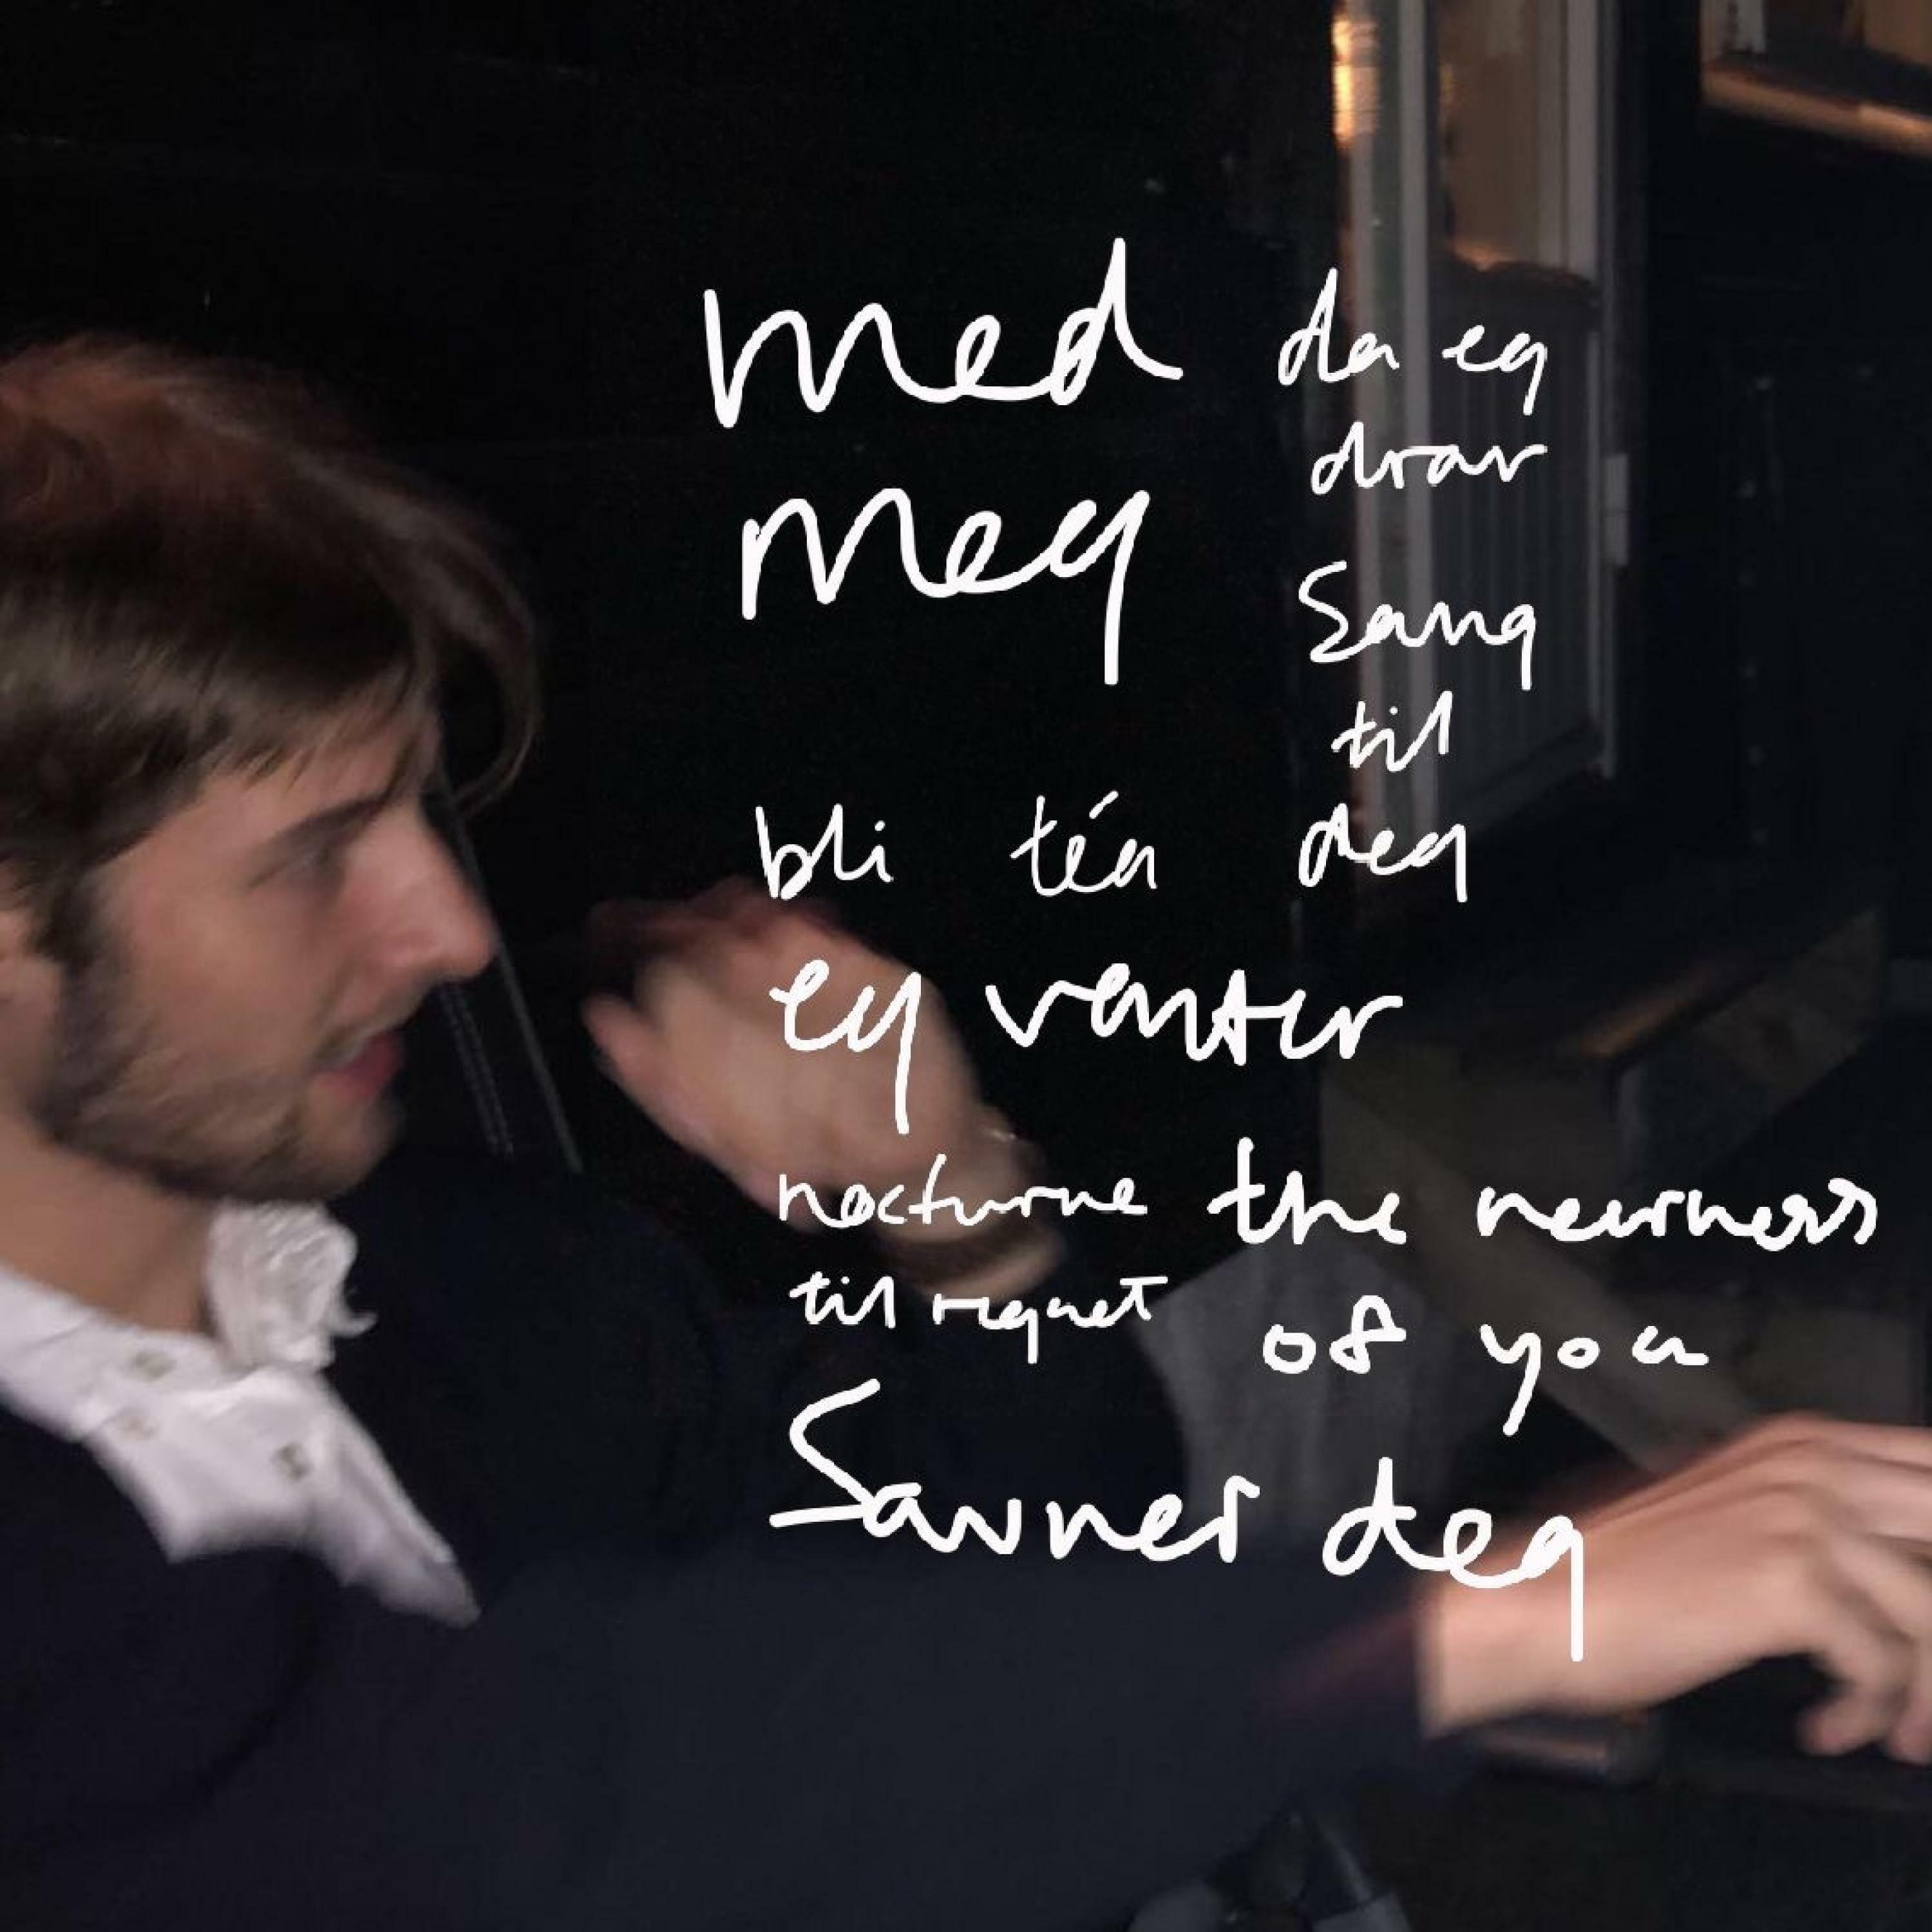 med
meg
da eg
drar
Sang
til
deg
bli téa
eg venter
nocturne
til regnet
the nearness
of you
Savner deg